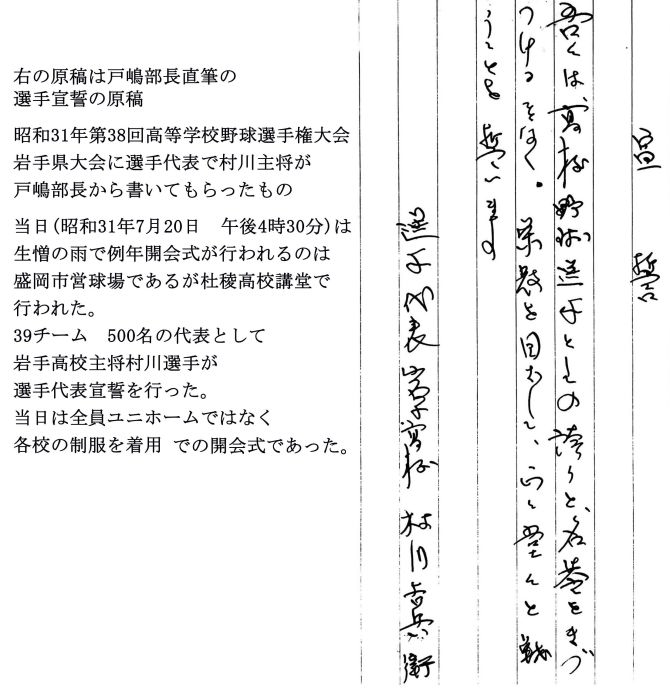 右の原稿は戸嶋部長直筆の
選手宣誓の原稿
昭和31年第38回高等学校野球選手権大会
岩手県大会に選手代表で村川主将が
戸嶋部長から書いてもらったもの
当日(昭和31年7月20日　午後4時30分)は
生憎の雨で例年開会式が行われるのは
盛岡市営球場であるが杜稜高校講堂で
行われた。
39チーム　500名の代表として
岩手高校主将村川選手が
選手代表宣誓を行った。
当日は全員ユニホームではなく
各校の制服を着用 での開会式であった。
宣　誓
吾々は、高校野球選手としての誇りと、名誉をきづ
つけることなく。栄冠を目ざして、正々堂々と戦
うことを誓います
選手代表 岩手高校 村川 兵衛